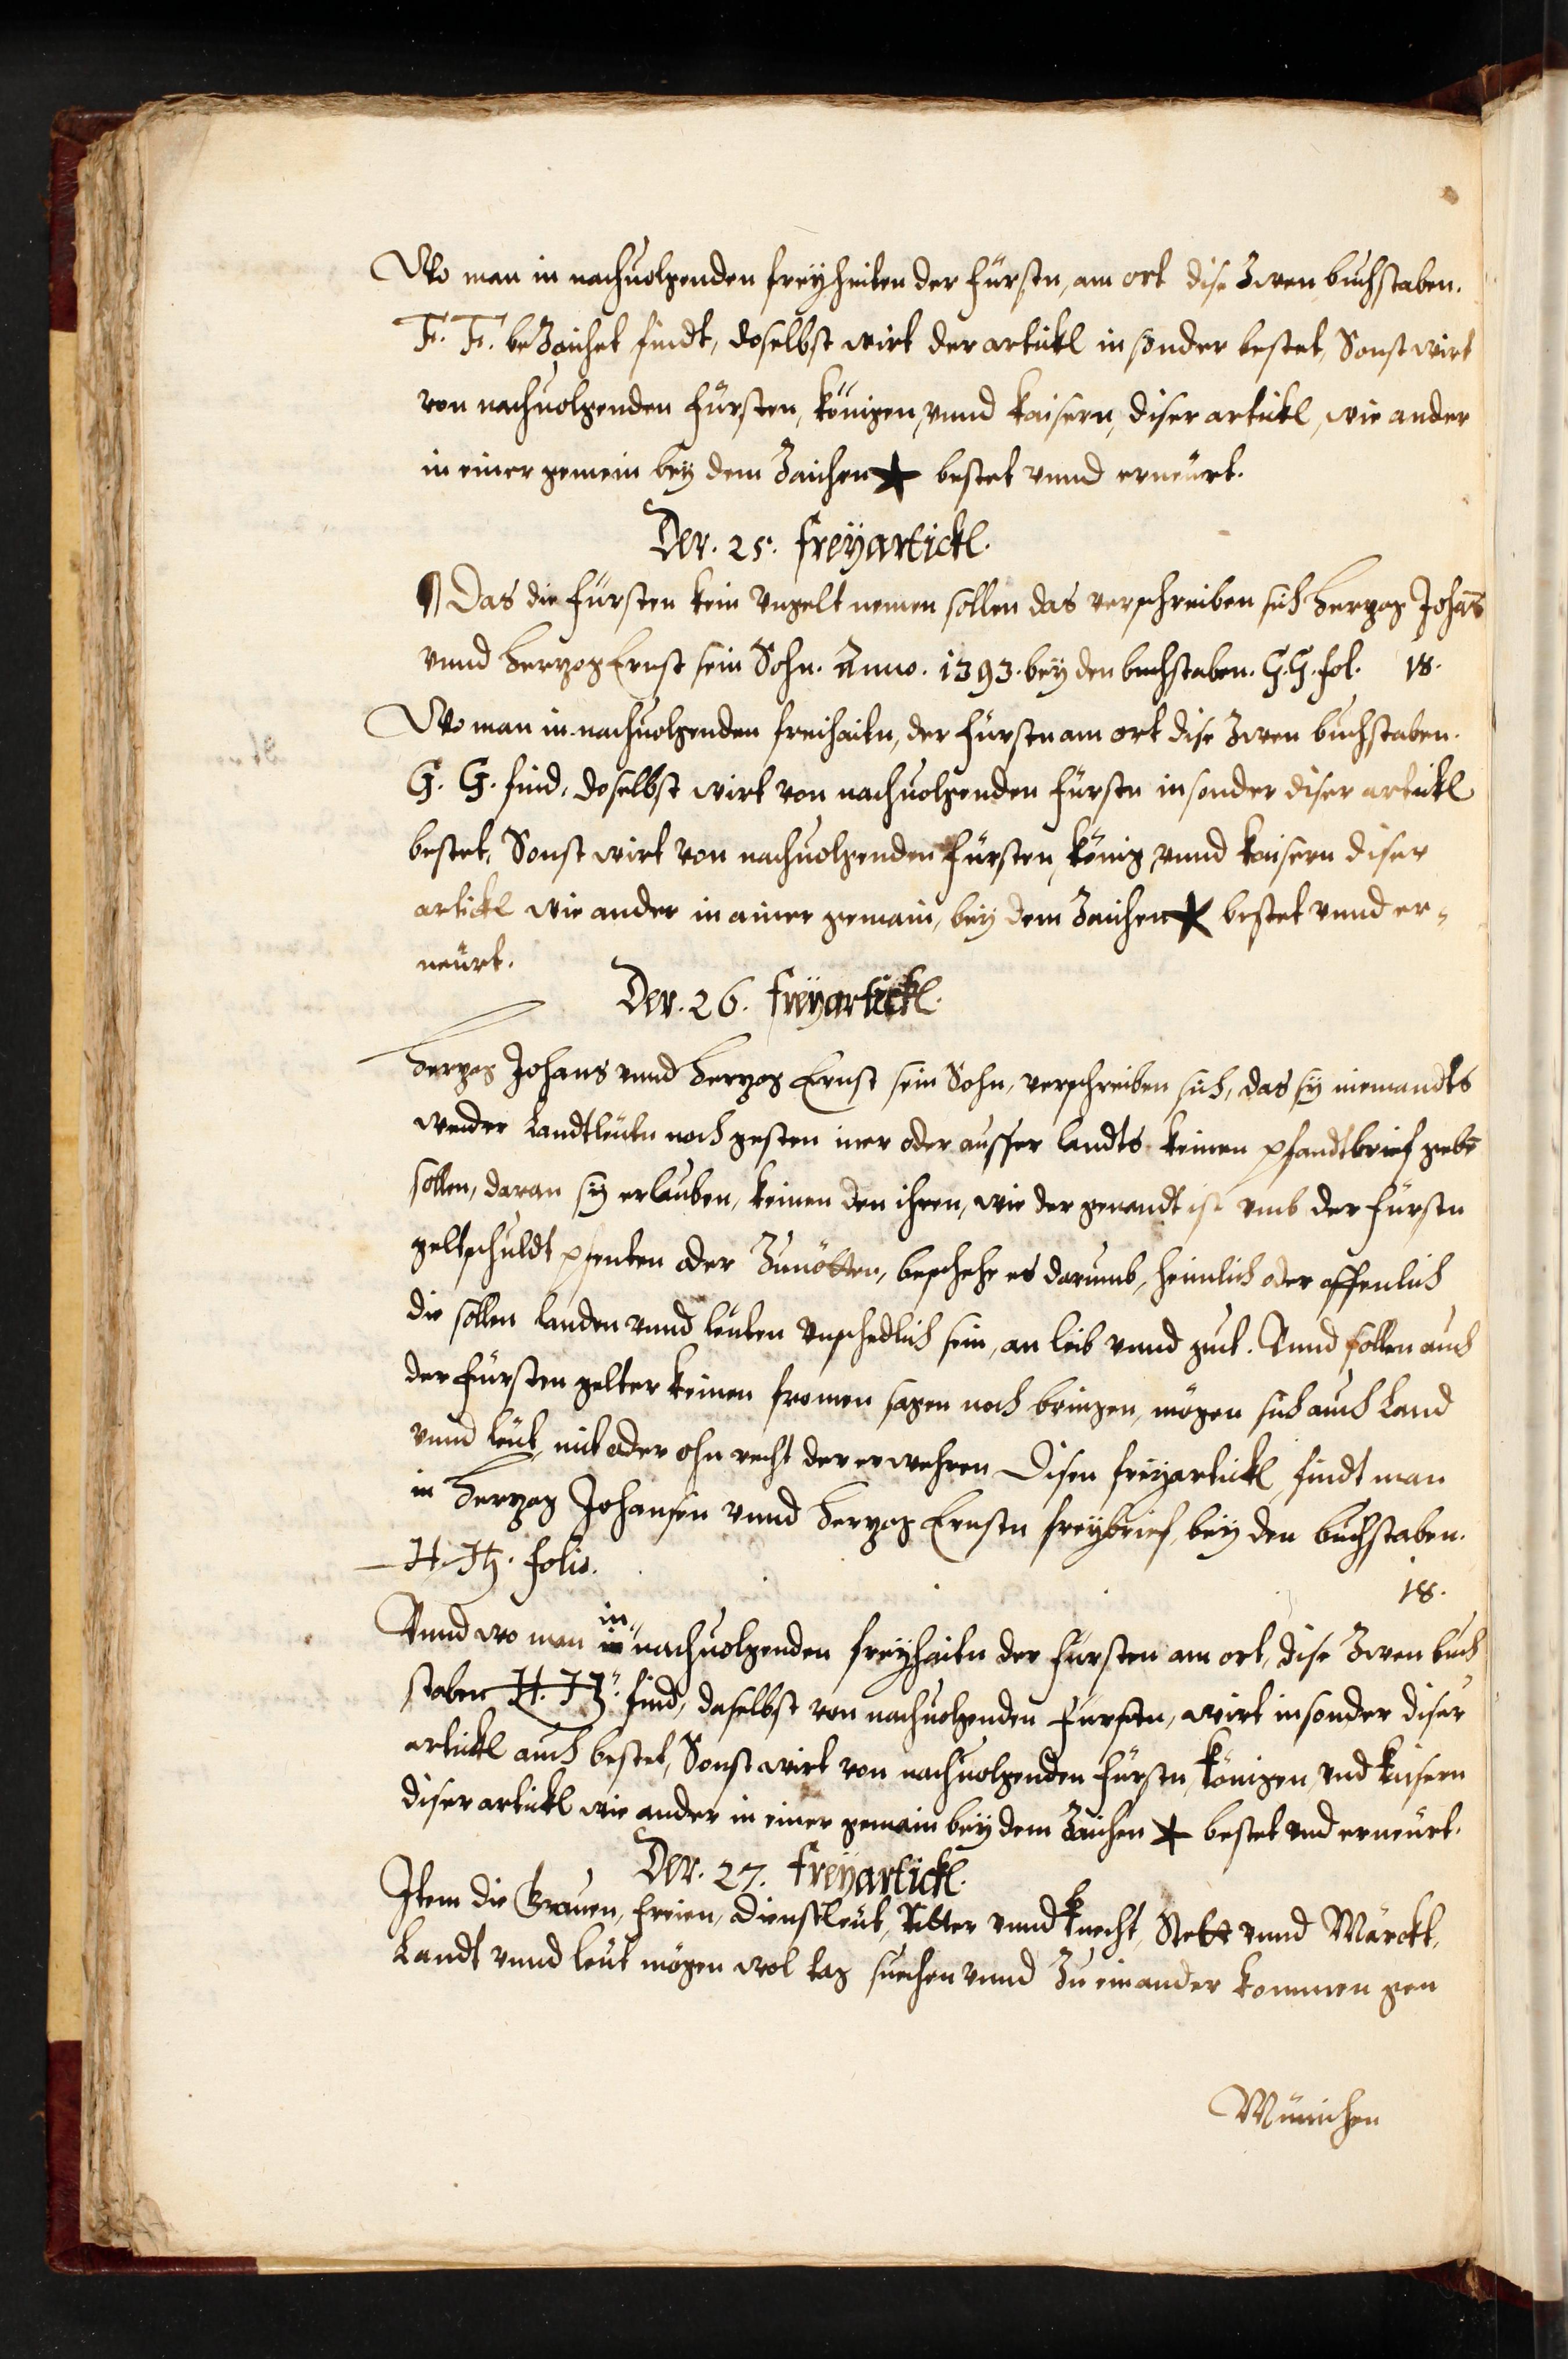 Wo man in nachuolgenden freÿheiten der Fürstn, am ort dise Zwen buchstaben.
F. F. beZaichet findt, doselbst wirt der artickl in sonder bestet, Sonst wirt
von nachuolgenden Fürsten, königen, vnnd kaisern, diser artickl, wie ander
in einer gemein beÿ dem Zaichen * bestet vnnd erneürt.
Der. 25. freÿartickl.
Das die Fürsten kein Vngelt nemen sollen das verschreiben sich Herzog Johãs
vnnd Herzog Ernst sein Sohn. Anno. 1393. beÿ den buchstaben. G. G. fol. 18.
Wo man in nachuolgenden freihaitn, der Fürstn am ort dise Zwen buchstaben.
G. G. find, doselbst wirt von nachuolgenden Fürstn in sonder diser artickl
bestet, Sonst wirt von nachuolgenden Fürsten, könig, vnnd kaisern diser
artickl wie ander in ainer gemain, beÿ dem Zaichen * bestet vnnd er-
neürt.
Der. 26. freÿartickl.
Herzog Johans vnnd Herzog Ernst sein Sohn, verschreiben sich, das sÿ niemandts
weder Landtleütn noch gesten iner oder ausser landts keinen pfandtbrief gebẽ
sollen, daran sÿ erlauben, keinen den ihren, wie der genandt ist vmb der Fürstn
geltschuldt pfenten oder Zunötten, beschehe es darumb, heimlich oder offenlich
die sollen landen vnnd leüten Vnschedlich sein, an leib vnnd gut. Vnnd sollen auch
der Fürsten gelter keinen fromen sagen noch bringen, mögen sich auch Land
vnnd leüt, mit oder ohn recht der erwehren Disen freÿartickl, findt man
in Herzog Johansen vnnd Herzog Ernstn freÿbrief, beÿ den buchstaben.
H. H. folio. 18.
Vnnd wo man in nachuolgenden freÿhaitn der Fürsten am ort, dise Zwen buch
staben H. H. find, daselbst von nachuolgenden Fürsten, wirt insonder diser
artickl auch bestet, Sonst wirt von nachuolgenden Fürstn, königen, vnd kaisern
diser artickl wie ander in einer gemain beÿ dem Zaichen * bestet vnd erneürt.
Der. 27. freÿartickl.
Item die Grauen, Freien, Dienstleüt, Ritter vnnd knecht, Stett vnnd Märckt,
Landt vnnd leüt mögen wol tag suechen vnnd Zu einander kommen gen
Münichen